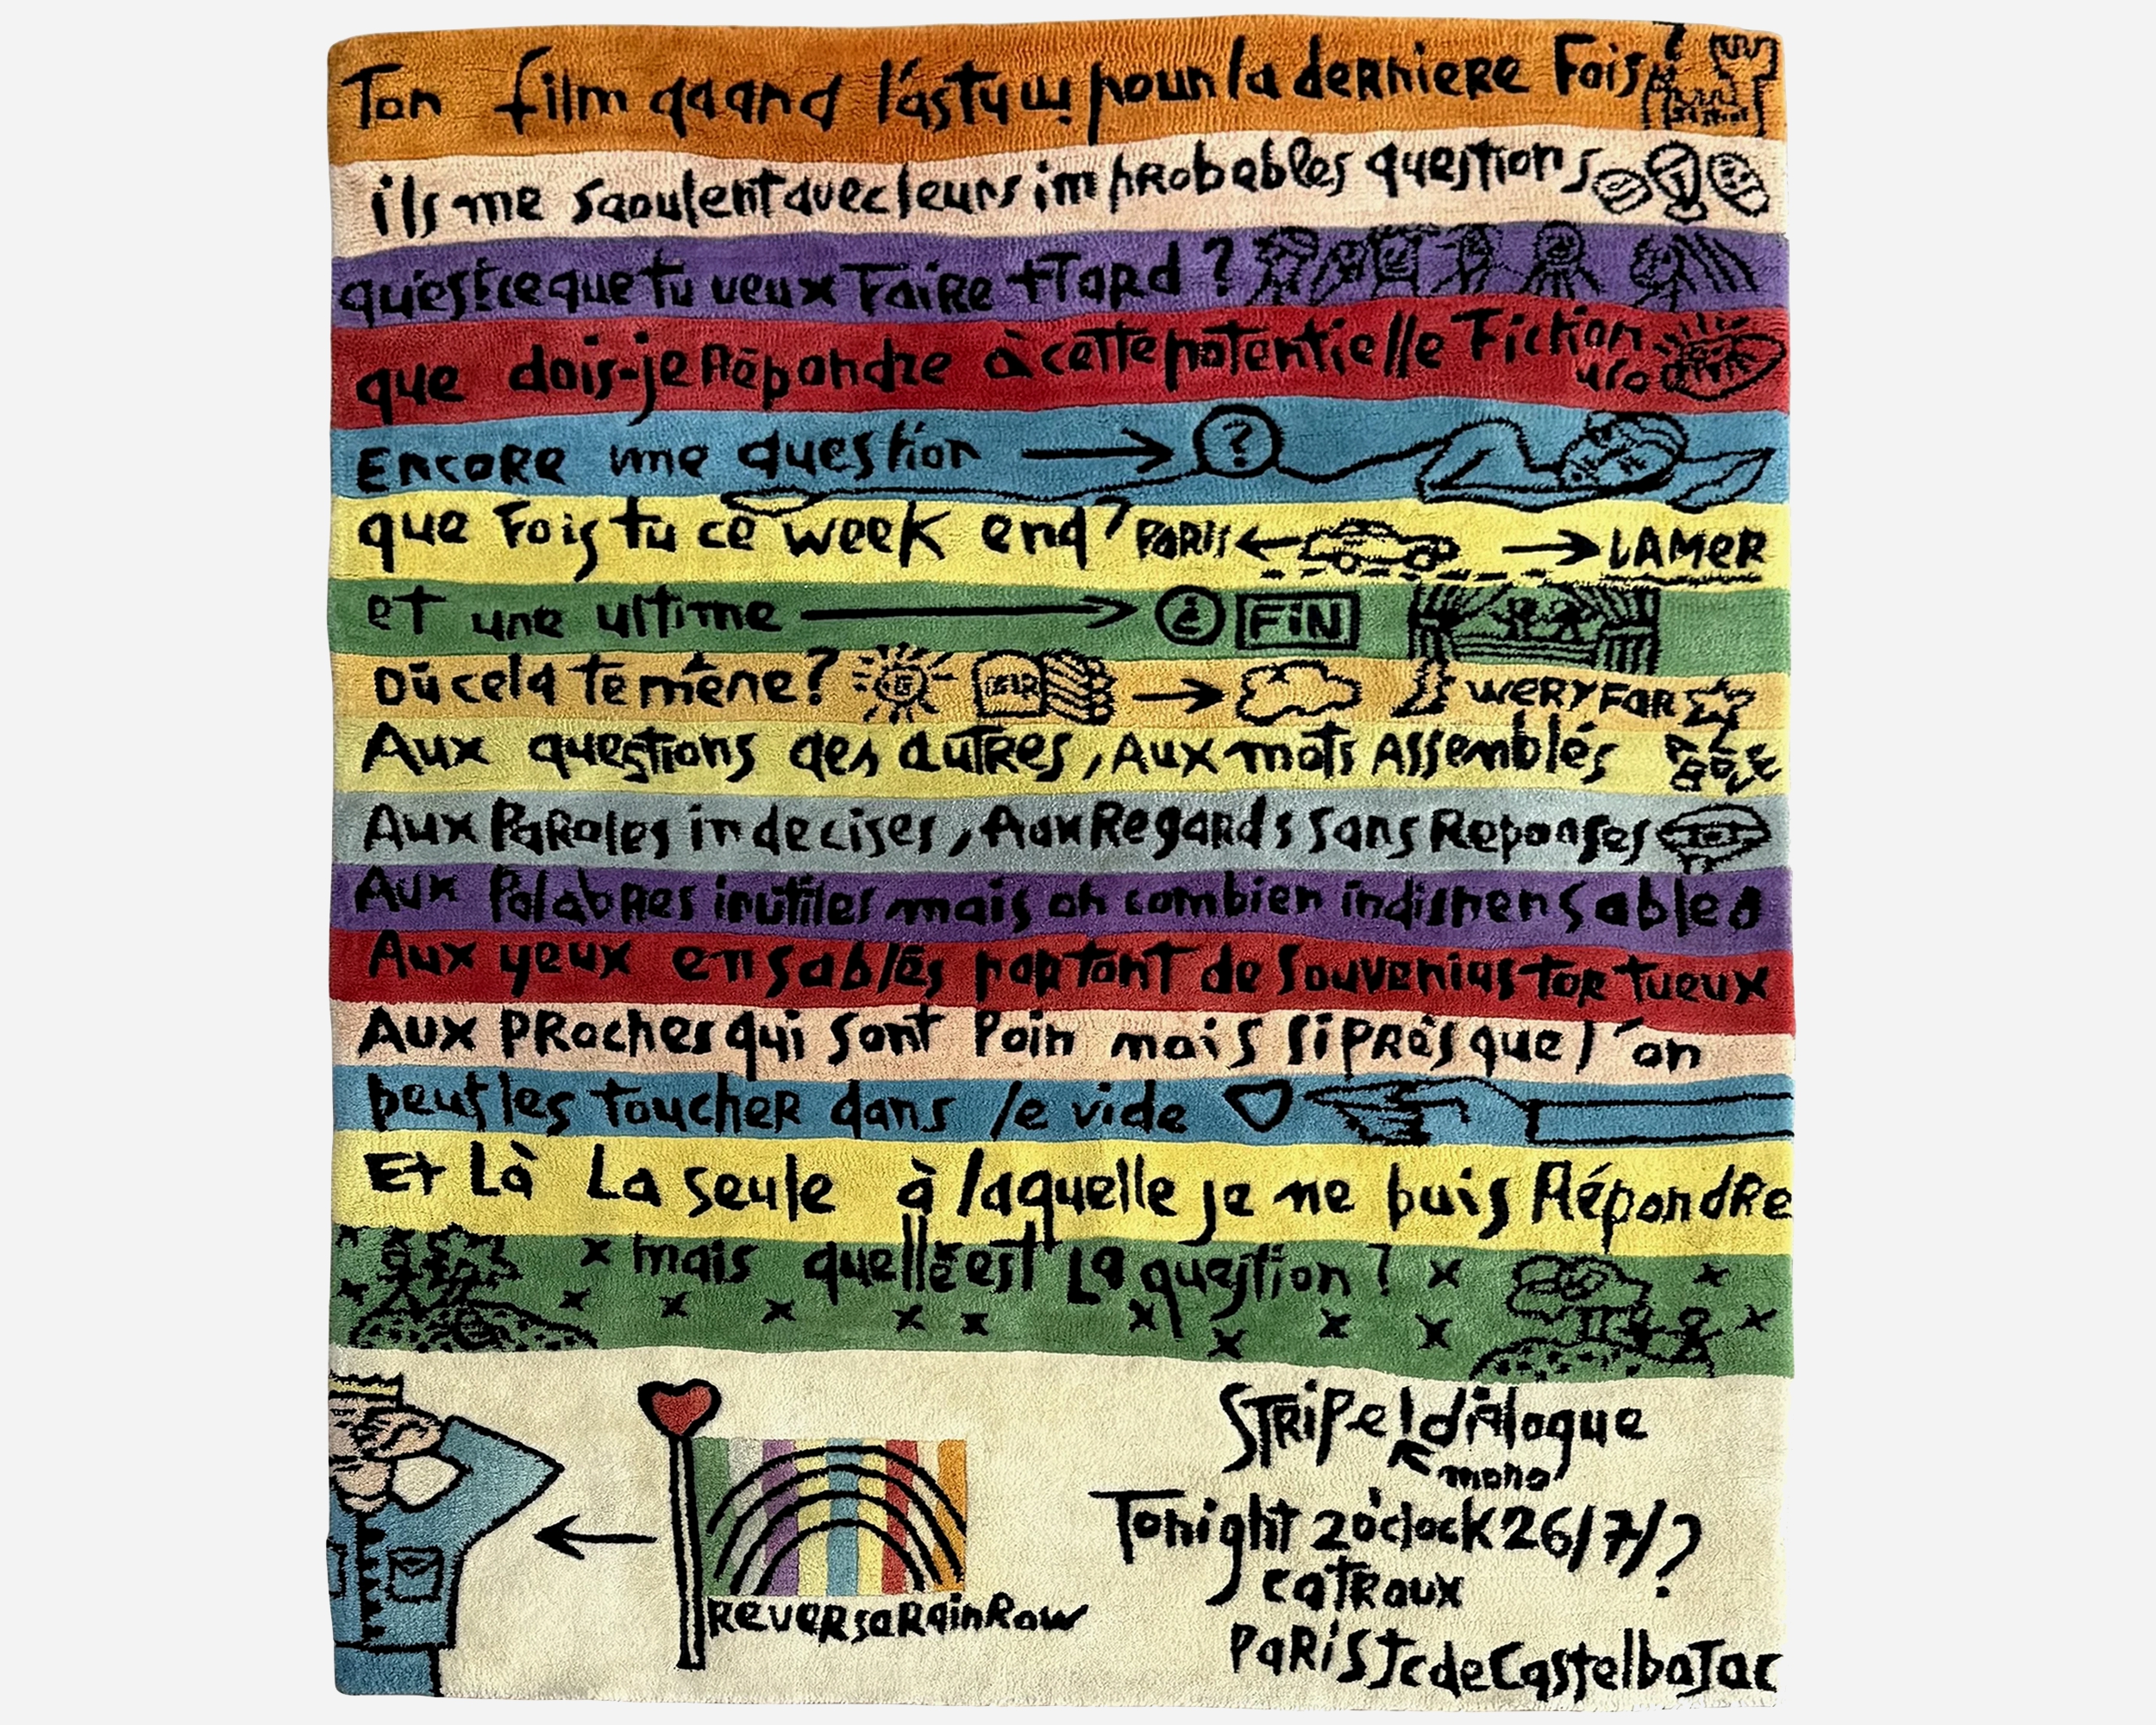 Ton film quand l'as tu vu pour la derniere Fois ?
ils me saoulent avec leurs improbables questions
qu'est ce que tu veux Faire +Tard ?
que dois-je Répondre à cette potentielle Fiction
Encore une question → ?
que Fais tu ce week end ? PARIS ← → LA MER
et une ultime → ¿ FIN
Où cela te mène ? → WERY FAR
Aux questions des autres, Aux mots Assemblés
Aux Paroles indecises, Aux Regards sans Reponses
Aux Palabres inutiles mais oh combien indispensables
Aux yeux ensablés partant de souvenirs tortueux
Aux proches qui sont loin mais si près que l'on
peut les toucher dans le vide
Et Là La seule à laquelle je ne puis Répondre
mais quelle est La question ?
STRIPe! dialogue
mono
Tonight 2 o'clock 26/7/?
catraux
REVERSARainRow
PARIS Jc de CastelbaJac